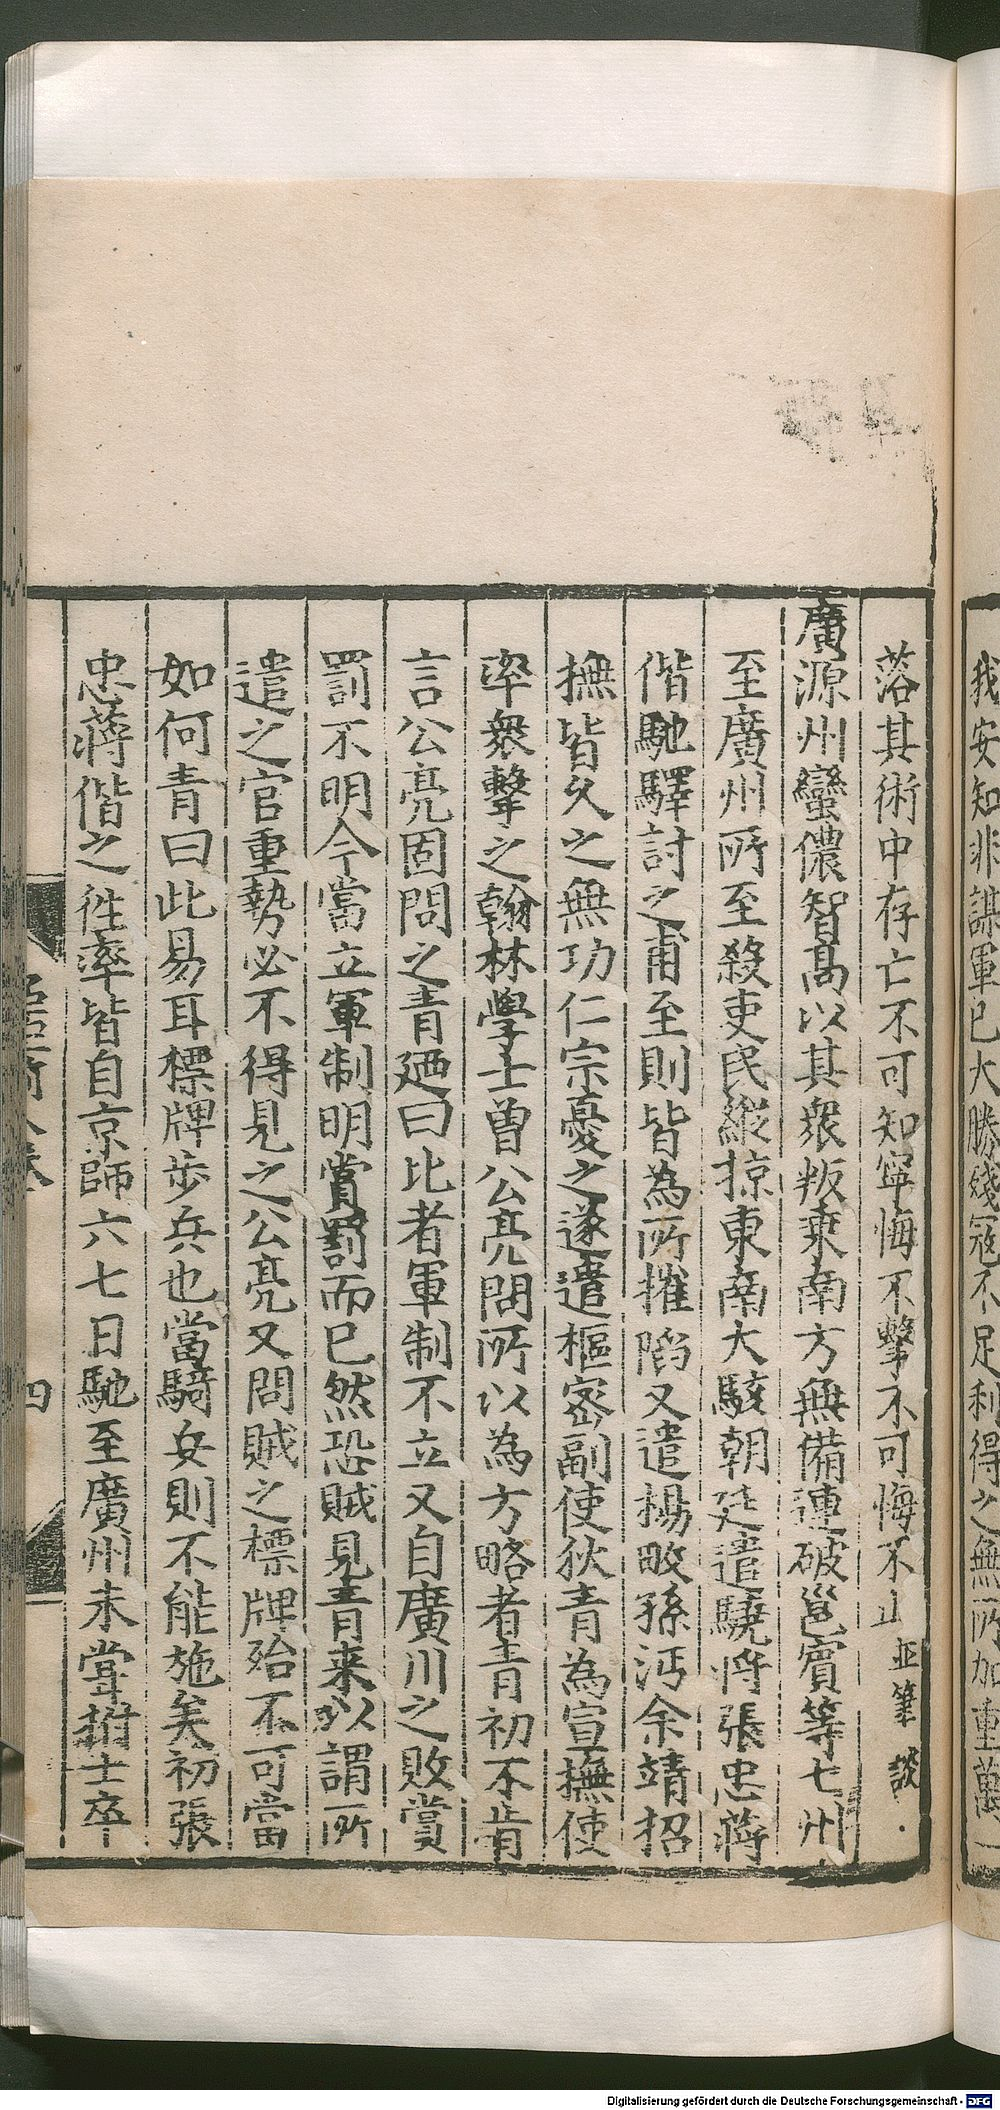 我安知非謀軍已大勝殘寇不足利得之無所加重萬一
落其術中存亡不可知寧悔不擊不可悔不止 並筆談
廣源州蠻儂智高以其衆叛乘南方無備連破邕賓等七州
至廣州所至殺吏民縱掠東南大駭朝廷遣驍將張忠蔣
偕馳驛討之甫至則皆為所摧陷又遣楊畋孫沔余靖招
撫皆久之無功仁宗憂之遂遣樞密副使狄青為宣撫使
率衆擊之翰林學士曾公亮問所以為方略者青初不肯
言公亮固問之青廼曰比者軍制不立又自廣川之敗賞
罰不明今當立軍制明賞罰而已然恐賊見青来以謂所
遣之官重勢必不得見之公亮又問賊之標牌殆不可當
如何青曰此易耳標牌步兵也當騎兵則不能施矣初張
忠蔣偕之徃率皆自京師六七日馳至廣州未嘗拊士卒
四
Digitalisierung gefördert durch die Deutsche Forschungsgemeinschaft - DFG